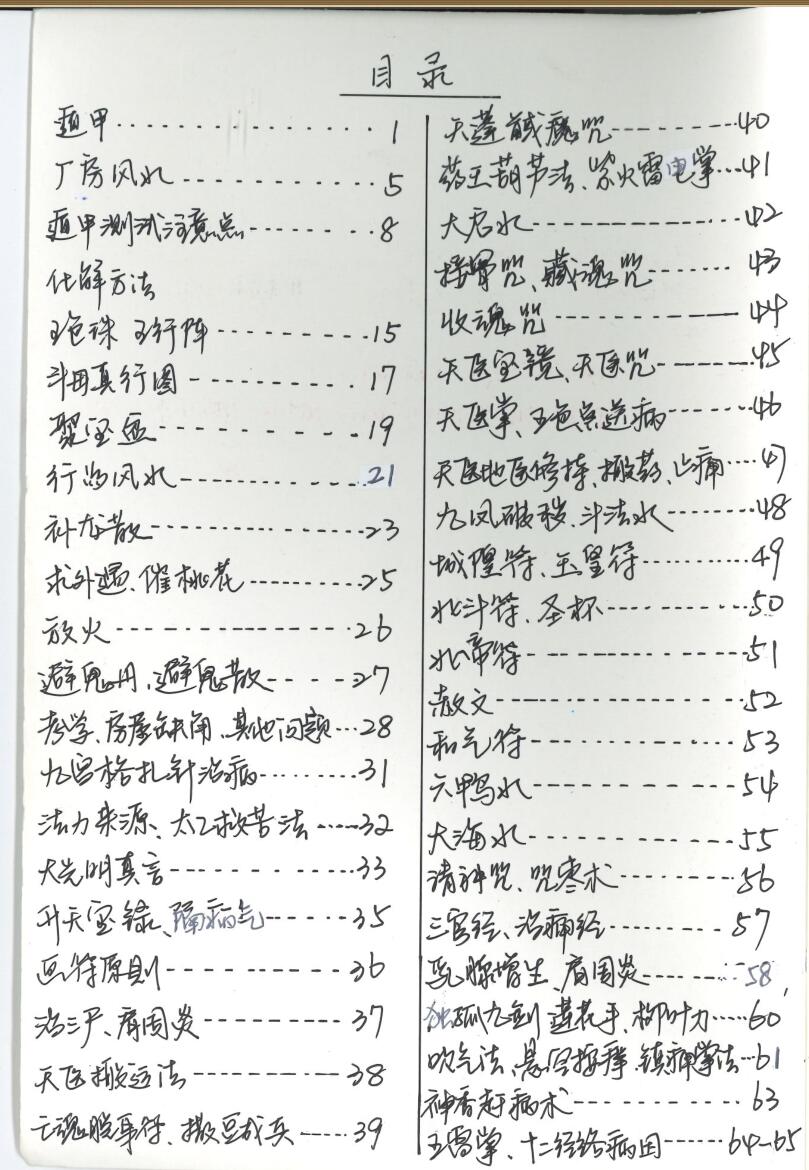 目录
遁甲 1
厂房风水 5
遁甲测试注意点 8
化解方法
五色珠 五行阵 15
斗母真行图 17
聚宝盆 19
行为风水 21
补龙散 23
求外遇、催桃花 25
放火 26
避鬼丹、避鬼散 27
考学、房屋缺角、其他问题 28
九宫格扎针治病 31
法力来源、太乙救苦法 32
大光明真言 33
升天宝箓、隔病气 35
画符原则 36
治三尸、肩周炎 37
天医搬运法 38
亡魂脱身符、撒豆成兵 39
天蓬馘魔咒 40
药王葫芦法、紫火雷电掌 41
大君水 42
接骨咒、藏魂咒 43
收魂咒 44
天医宝镜、天医咒 45
天医掌、五色气送病 46
天医地医修持、搬药、止痛 47
九凤破秽、斗法水 48
城隍符、玉皇符 49
北斗符、圣杯 50
北帝符 51
赦文 52
和气符 53
六鸭水 54
大海水 55
请神咒、咒枣术 56
三官经、治病经 57
乳腺增生、肩周炎 58
独孤九剑 莲花手、柳叶刀 60
吹气法、悬空按摩、镇痛掌法 61
神香赶病术 63
五雷掌、十二经络病因 64—65